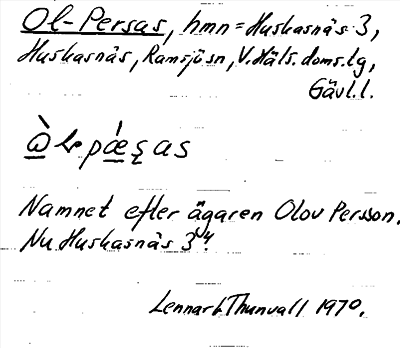 Ol-Persas, hmn = Huskasnäs 3,
Huskasnäs, Ramsjö sn, V. Häls. doms.lg,
Gävl.l.
Namnet efter ägaren Olov Persson.
Nu Huskasnäs 3⁴.
Lennart Thunvall 1970.